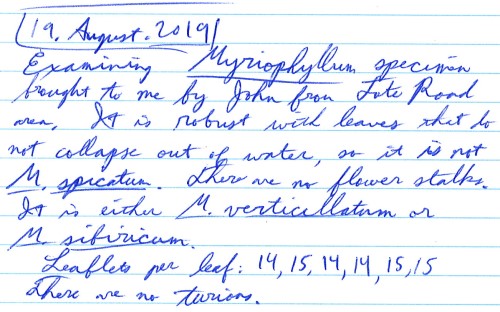 19. August. 2019
Examining Myriophyllum specimen
brought to me by John from Tote Road
area. It is robust with leaves that do
not collapse out of water, so it is not
M. spicatum. There are no flower stalks.
It is either M. verticillatum or
M. sibiricum.
Leaflets per leaf: 14, 15, 14, 14, 15, 15
There are no turions.